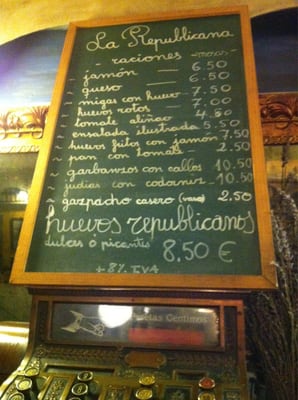 La Republicana
raciones -mesas-
~ jamón — 6.50
~ queso — 6.50
~ migas con huevo - 7.50
~ huevos rotos — 7.00
~ tomate aliñao 4.80
~ ensalada ilustrada 5.50
~ huevos fritos con jamón 7.50
~ pan con tomate - 2.50
~ garbanzos con callos 10.50
~ judias con codorniz - 10.50
~ gazpacho casero (vaso) 2.50
huevos republicanos
dulces ó picantes 8.50 €
+ 8% IVA
Pesetas Centimos